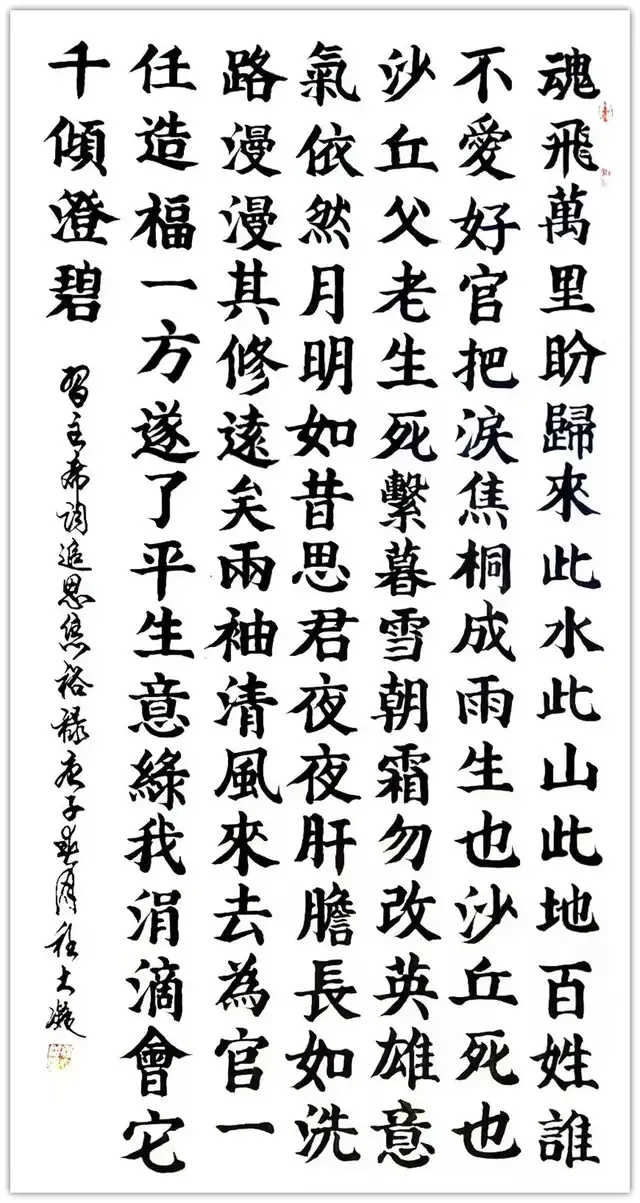 魂飛萬里盼歸來此水此山此地百姓誰
不愛好官把淚焦桐成雨生也沙丘死也
沙丘父老生死繫暮雪朝霜勿改英雄意
氣依然月明如昔思君夜夜肝膽長如洗
路漫漫其修遠矣兩袖清風來去為官一
任造福一方遂了平生意綠我涓滴會它
千傾澄碧
習主席詞追思焦裕祿庚子春月